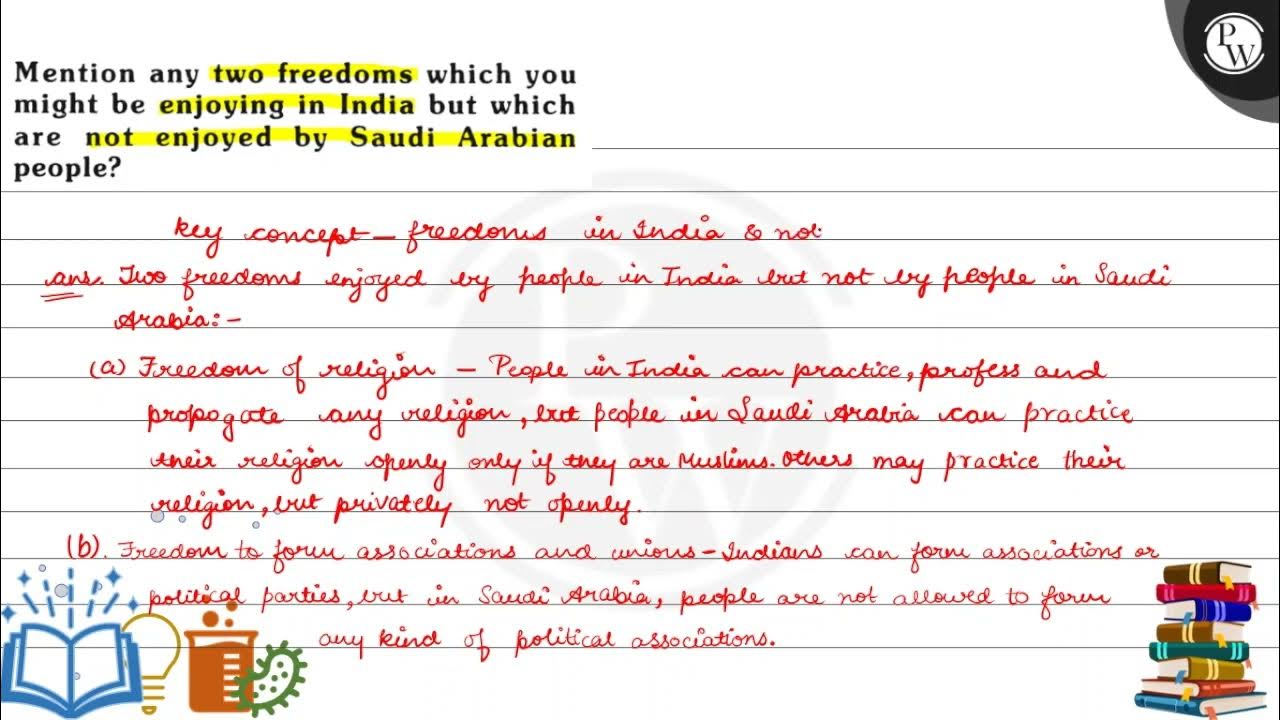 P
W
Mention any two freedoms which you
might be enjoying in India but which
are not enjoyed by Saudi Arabian
people?
key concept - freedoms in India & not
ans. Two freedoms enjoyed by people in India but not by people in Saudi
Arabia:-
(a) Freedom of religion - People in India can practice, profess and
propogate any religion, but people in Saudi Arabia can practice
their religion openly only if they are Muslims. Others may practice their
religion, but privately not openly.
(b). Freedom to form associations and unions - Indians can form associations or
political parties, but in Saudi Arabia, people are not allowed to form
any kind of political associations.